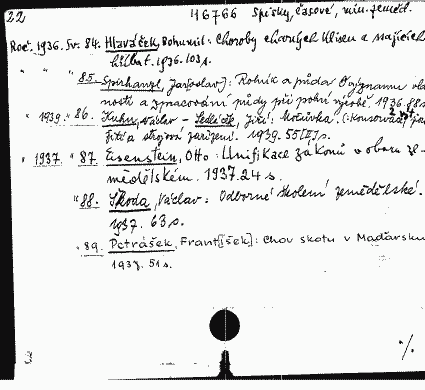 22 H6766 Spisky, časové, min. zeměd.
Roč. 1936. Sv. 84. Hlaváček, Bohumil: Choroby chovných klisen a sajících
hříbat. 1936. 103 s.
" " " 85. Spirhanzl, Jaroslav]: Rolník a půda. O významu vla-
nosti a zpracování půdy při polní výrobě. 1936. 88 s.
" 1939. " 86. Kuhn, Václav - Sedláček, Jiří:
žití a strojová zařízení. 1939. 55 [II] s.
" 1937. " 87. Eisenstein, Otto: Unifikace zákonů v oboru ze-
mědělském. 1937. 24 s.
" 88. Škoda, Václav: Odborné školení zemědělské.
1937. 63 s.
" 89. Petrášek, Frant[išek]: Chov skotu v Maďarsku
1937. 51 s.
%